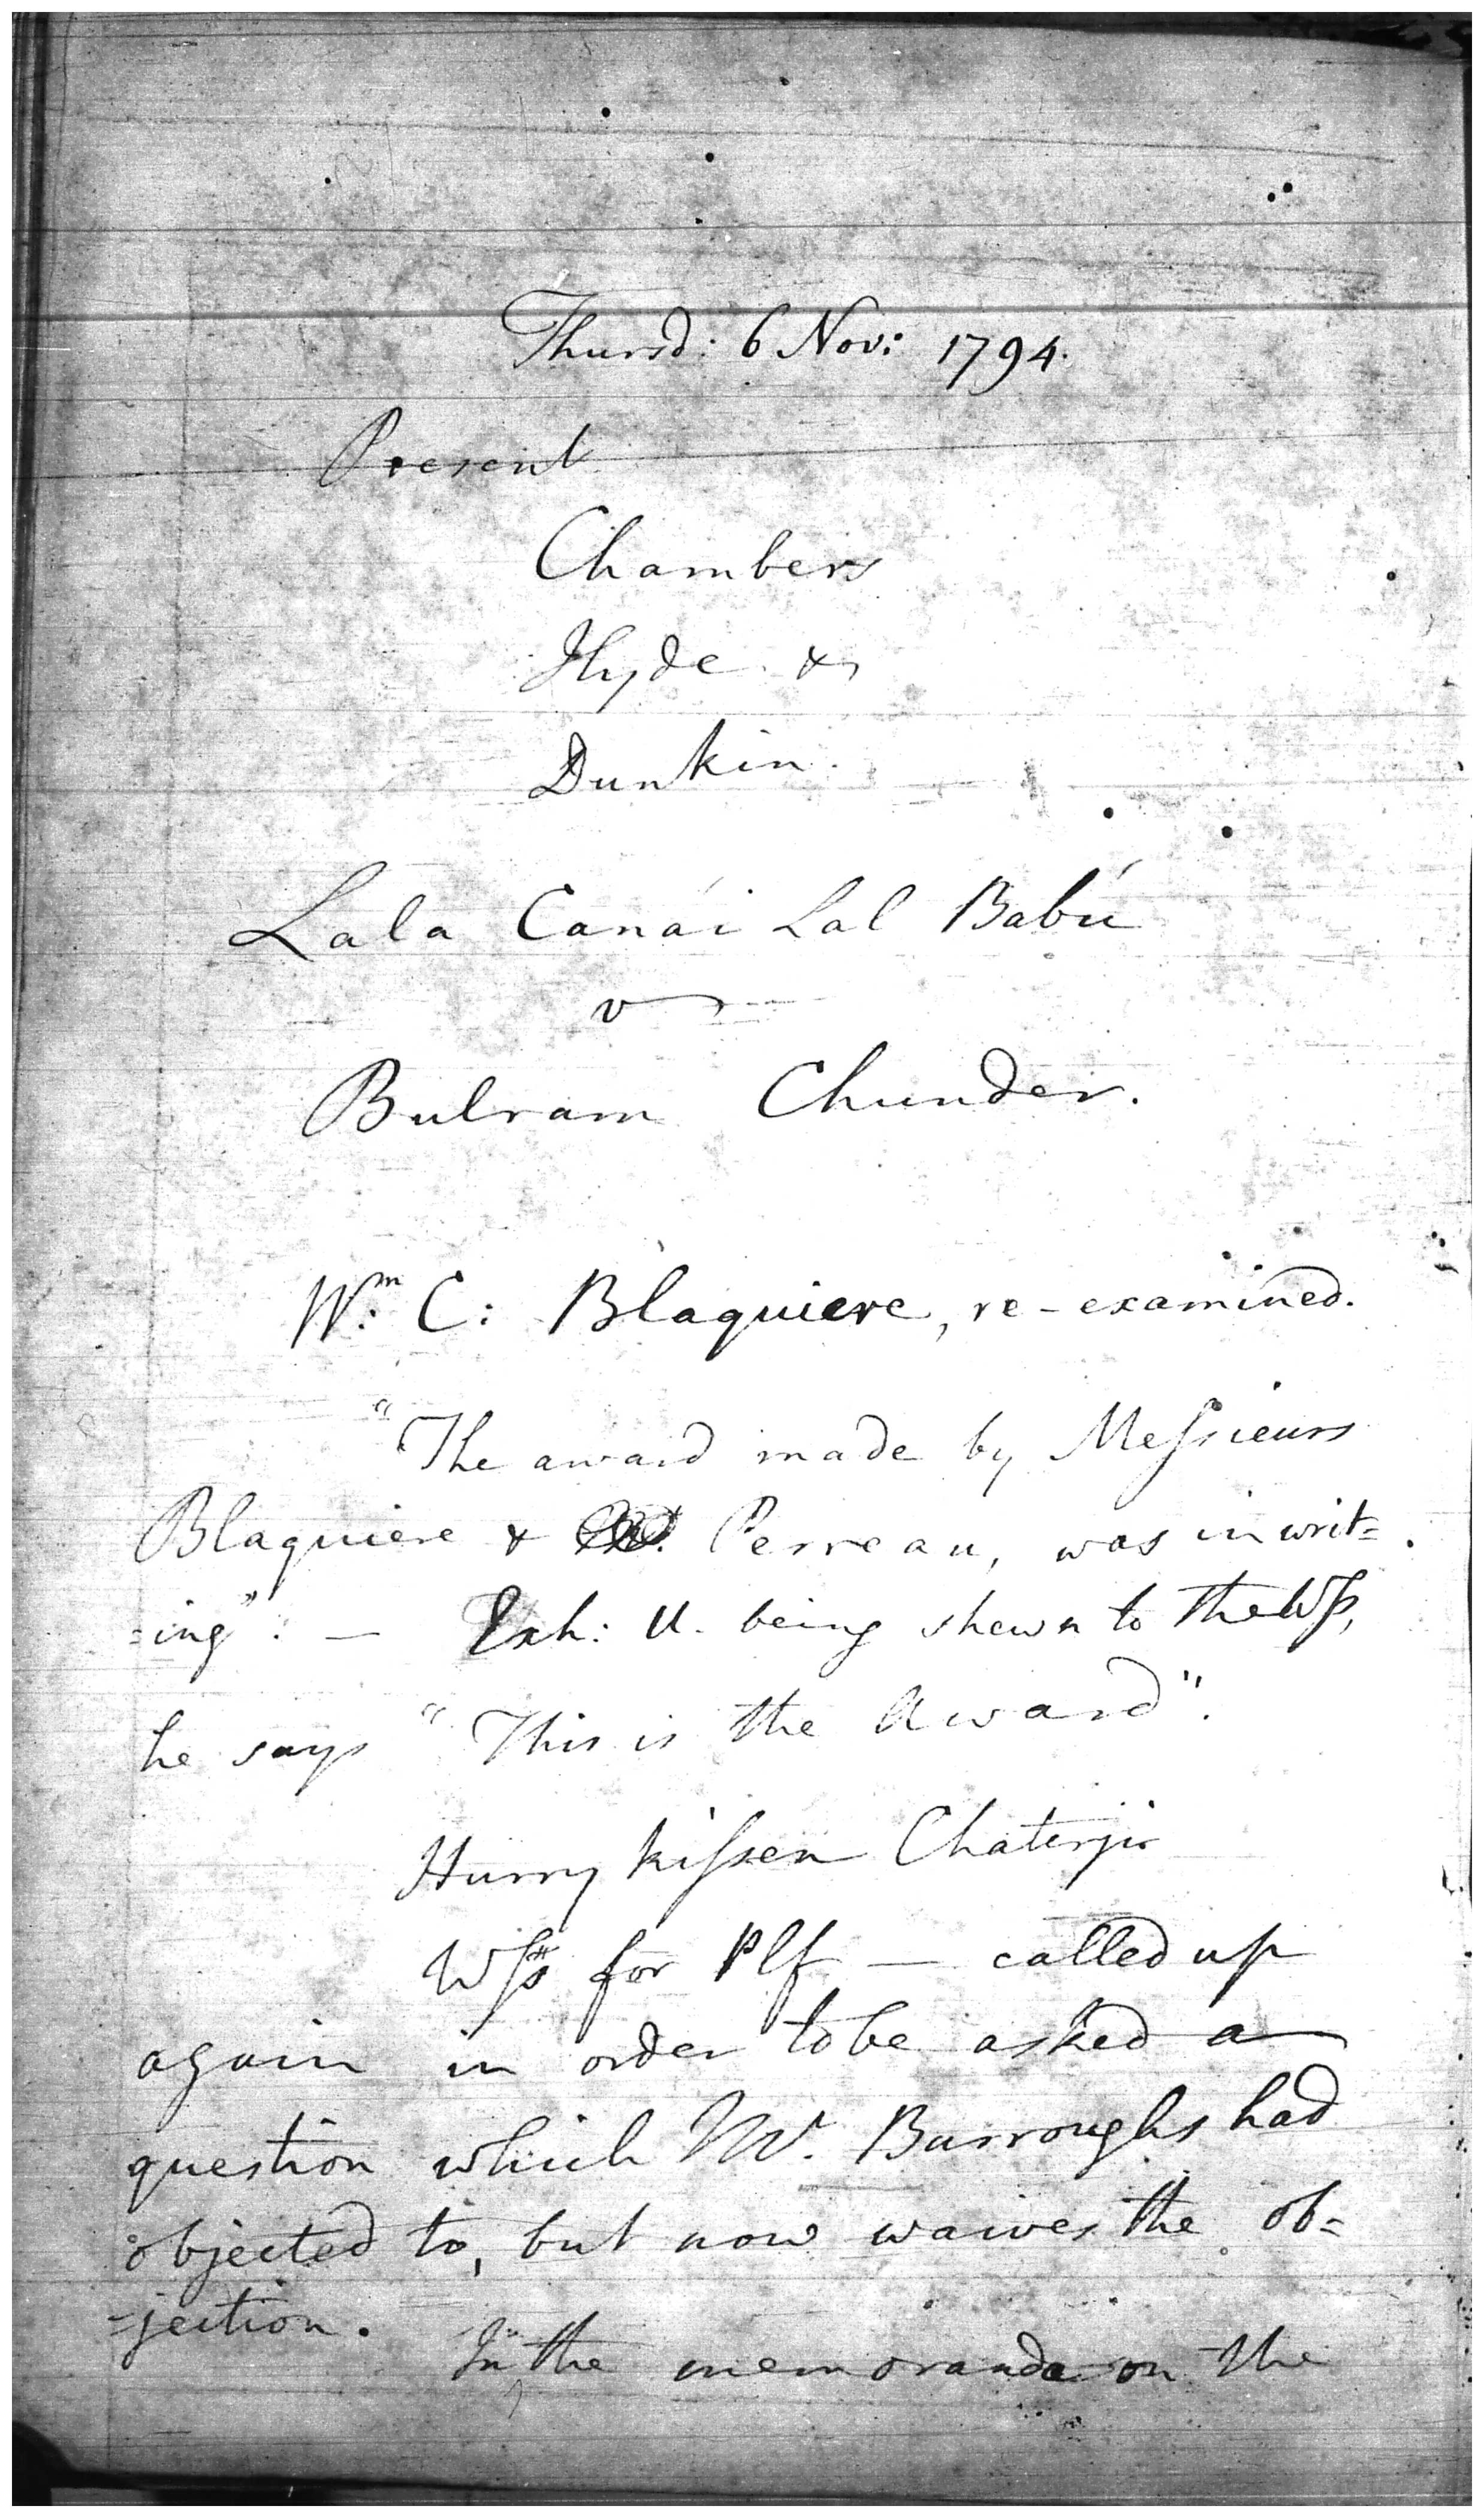 Thursd: 6 Nov: 1794.
Present
Chambers
Hyde &
Dunkin.
Lala Canái Lal Babú
v
Bulram Chunder.
Wm: C: Blaquiere, re-examined.
"The award made by Meſsieurs
Blaquiere & Perreau, was in writ=
=ing". — Exh: U. being shewn to the Wſs,
he says "This is the Award".
Hurry kiſsen Chaterjie
Wſs for Plf — called up
again in order to be asked a
question which Mr. Burroughs had
objected to, but now waives the ob=
=jection.
In the memoranda on the